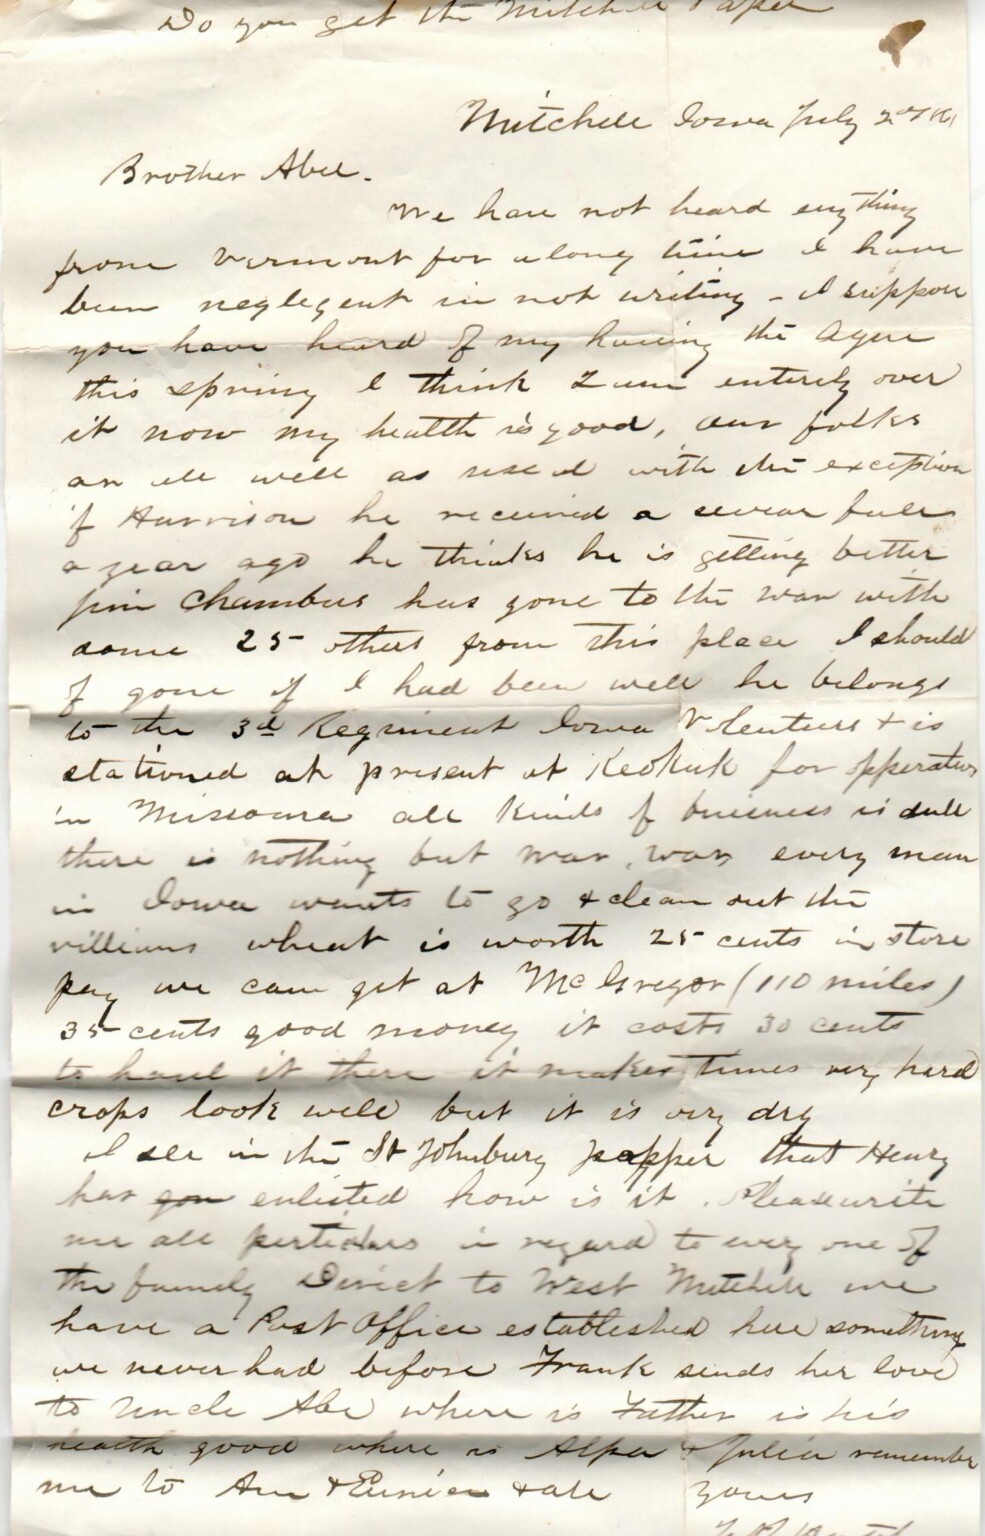 Do you get the Mitchell Paper
Mitchell Iowa July 2nd 61
Brother Abel.
We have not heard enything
from Vermont for a long time I have
been neglegent in not writing - I suppose
you have heard of my having the Ague
this spring I think I am entirely over
it now my health is good, our folks
are all well as usual with the exception
of Harrison he received a sevear fall
a year ago he thinks he is getting better
Jim Chambers has gone to the war with
some 25 others from this place I should
of gone if I had been well he belongs
to the 3d Regiment Iowa Volenteers & is
stationed at present at Keokuk for opperations
in Missoura all kinds of buisness is dull
there is nothing but war, war, every man
in Iowa wants to go & clean out the
villians wheat is worth 25 cents in store
pay we can get at McGregor (110 miles)
35 cents good money it costs 30 cents
to haul it there it makes times very hard
crops look well but it is very dry
I see in the St Johnsbury papper that Henry
has gon enlisted how is it. Please write
me all perticulars in regard to every one of
the family Direct to West Mitchell we
have a Post Office established here something
we never had before Frank sends her love
to Uncle Abe where is Father is his
health good where is Alpa & Julia remember
me to Ann & Eunice & all yours